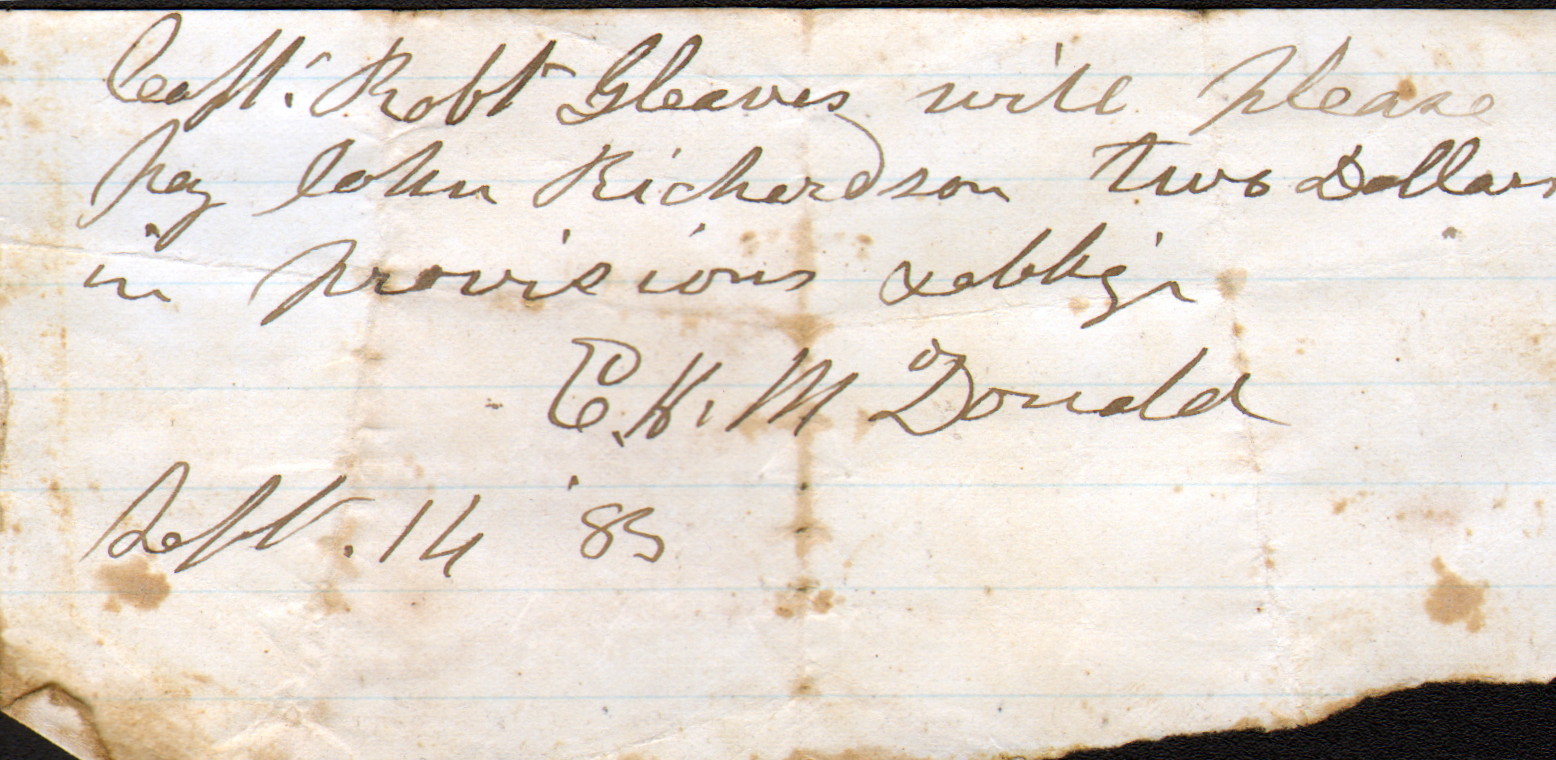 Capt. Robt Gleaves will please
pay John Richardson two Dollars
in provisions & oblige
E. H. McDonald
Sept. 14 '83